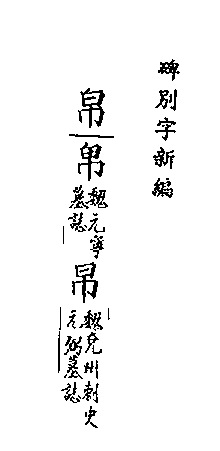 碑別字新編
帛
帛
魏元寧
墓誌
帛
魏兗州刺史
元弼墓誌